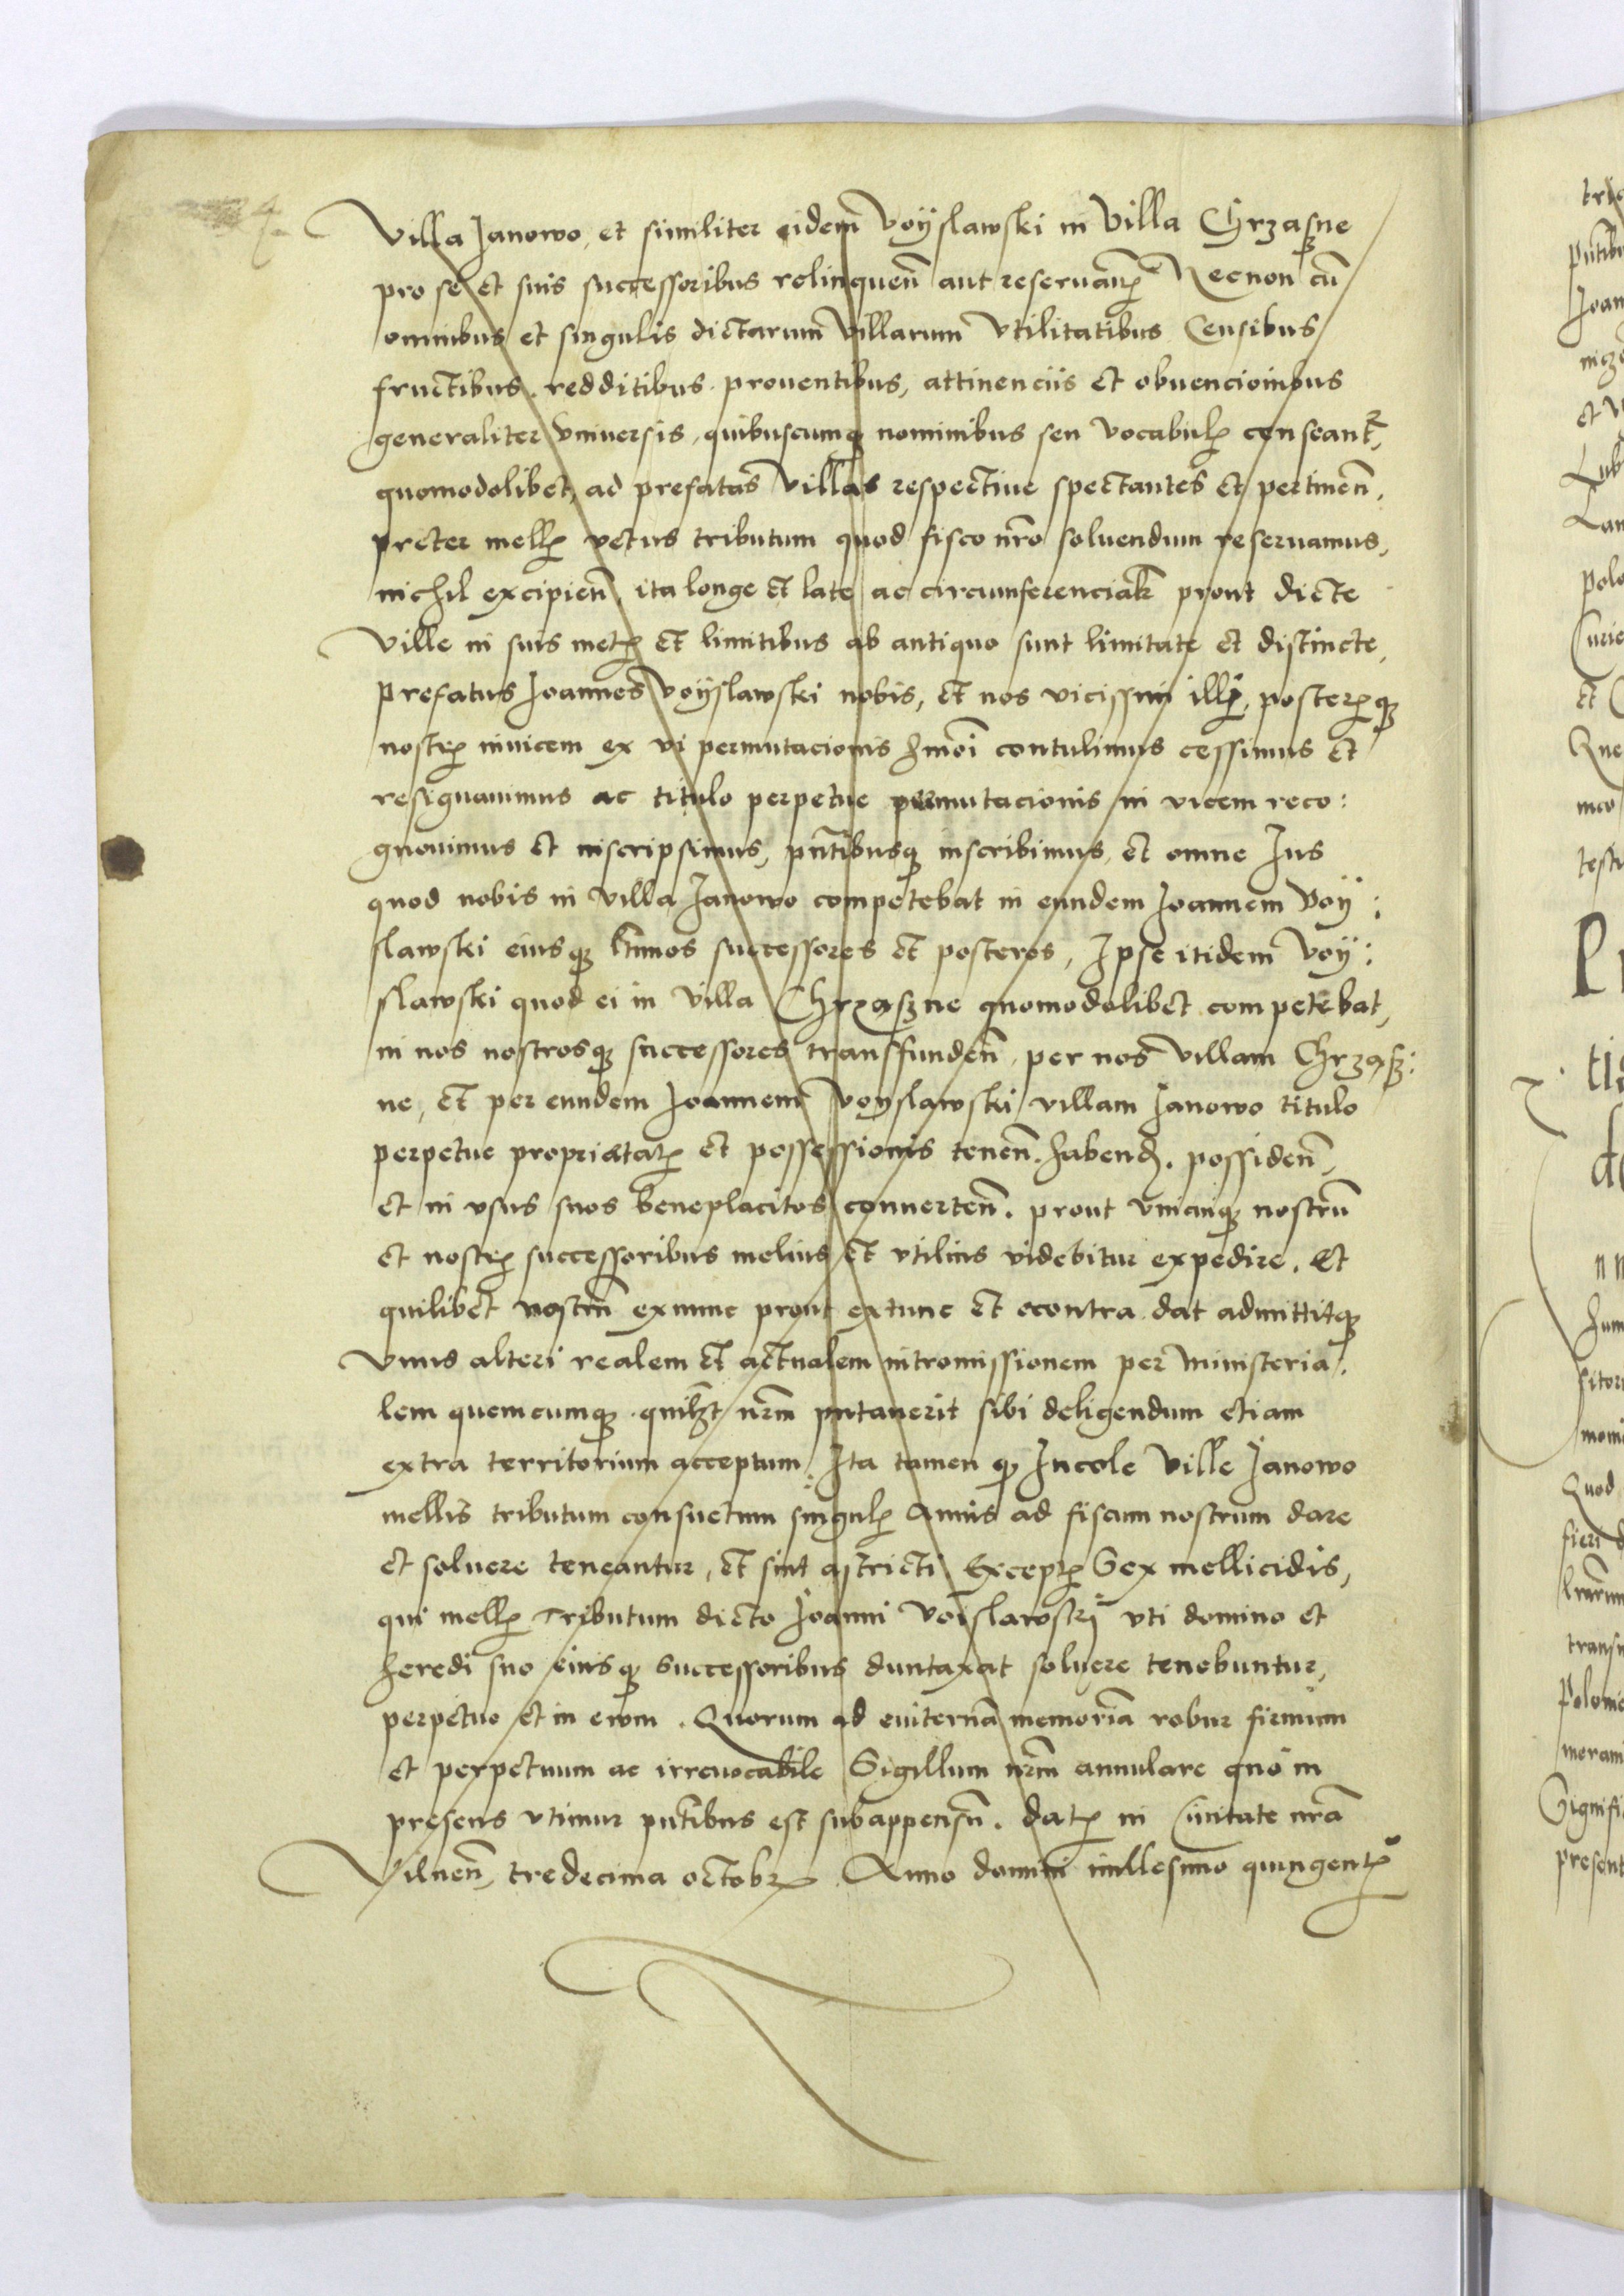 Villa Janowo, et similiter eidem Voÿslawski in Villa Chrzaszne
pro se et suis successoribus relinquen̄ aut reseruan̄ꝭ Necnon cū
omnibus et singulis dictarum Villarum vtilitatibus Censibus
fructibus. redditibus. prouentibus, attinenciis et obuencionibus
generaliter vniuersis, quibuscumqꝫ nominibus seu vocabulꝭ censeantr̄,
quomodolibet, ad prefatas villas respectiue spectantes et pertinen̄.
preter mellꝭ vetus tributum quod fisco nr̄o soluendum reseruamus,
nichil excipien̄, ita longe et late ac circumferencialr̄ prout dicte
Ville in suis metꝭ et limitibus ab antiquo sunt limitate et distincte,
prefatus Joannes Voÿslawski nobis, et nos vicissim illꝭ, posterꝭqꝫ
nostrꝭ inuicem ex vi permutacionis hmōi contulimus cessimus et
resignauimus ac titulo perpetue permutacionis in vicem reco:
gnouimus et inscripsimus, pn̄tibusqꝫ inscribimus, et omne Jus
quod nobis in villa Janowo competebat in eundem Joannem Voÿ:
slawski eiusqꝫ ltīmos successores et posteros, Ipse itidem Voÿ:
slawski quod ei in villa Chrzaszne quomodolibet competebat,
in nos nostrosqꝫ successores transfunden̄. per nos villam Chrzasz:
ne, et per eundem Joannem Voyslawski villam Janowo titulo
perpetue proprietatꝭ et possessionis tenen̄. habend. possiden̄,
et in vsus suos beneplacitos conuerten̄. prout vnicuiqꝫ nostrū
et nostrꝭ successoribus melius et vtilius videbitur expedire. Et
quilibet nostrūm exnunc prout extunc et econtra dat admittitqꝫ
vnus alteri realem et actualem intromissionem per ministeria.
lem quemcumqꝫ. quilꝫt nr̄m putauerit sibi deligendum etiam
extra territorium acceptum. Ita tamen qꝫ Incole ville Janowo
mellis tributum consuetum singulꝭ Annis ad fiscum nostrum dare
et soluere teneantur, et sint astricti Exceptꝭ Sex mellicidis,
qui mellꝭ Tributum dicto Joanni Voislawskÿ vti domino et
heredi suo eiusqꝫ successoribus duntaxat soluere tenebuntur,
perpetuo et in ewm. Quorum ad euiternā memoriā robur firmum
et perpetuum ac irreuocabile Sigillum nr̄m annulare quo in
presens vtimur pn̄tibus est subappensū. datꝭ in Ciuitate nr̄a
Vilnen̄, tredecima octobrꝭ Anno domini millesimo quingentꝭº